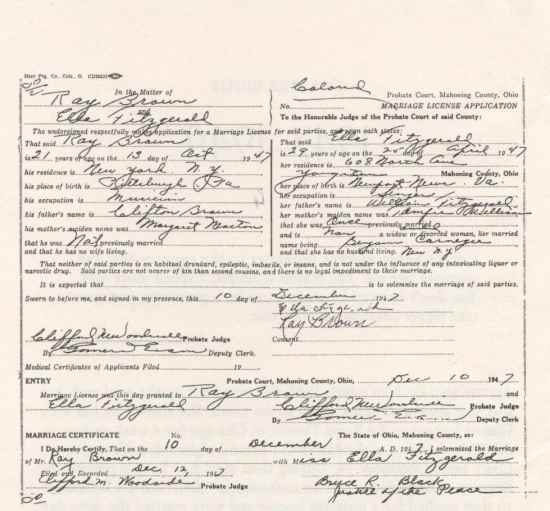 In the Matter of
Ray Brown
and
Ella Fitzgerald
Colored
Probate Court, Mahoning County, Ohio
No. MARRIAGE LICENSE APPLICATION
To the Honorable Judge of the Probate Court of said County:
The undersigned respectfully makes application for a Marriage License for said parties, and upon oath states:
That said Ray Brown
is 21 years of age on the 13 day of Oct 1947
his residence is New York N.Y.
his place of birth is Pittsburgh Pa
his occupation is Musician
his father's name is Clifton Brown
his mother's maiden name was Margaret
that he was Not previously married
and that he has no wife living.
That said Ella Fitzgerald
is 28 years of age on the 25 day of April 1947
her residence is 608 North Ave
Youngstown Mahoning County, Ohio
her place of birth is Newport News Va.
her occupation is Singer
her father's name is William Fitzgerald
her mother's maiden name was Williams
that she was Once previously married
and is Not a widow or divorced woman, her married
name being Carnegie
and that she has no husband living. New N.Y
That neither of said parties is an habitual drunkard, epileptic, imbecile, or insane, and is not under the influence of any intoxicating liquor or
narcotic drug. Said parties are not nearer of kin than second cousins, and there is no legal impediment to their marriage.
It is expected that is to solemnize the marriage of said parties.
Sworn to before me, and signed in my presence, this 10 day of December 1947
Ella Fitzgerald
Ray Brown
Clifford M Woodside Probate Judge
Consent
By Deputy Clerk.
Medical Certificates of Applicants Filed 19
ENTRY Probate Court, Mahoning County, Ohio, Dec 10 1947
Marriage License was this day granted to Ray Brown and
Ella Fitzgerald Clifford M Woodside Probate Judge
By Deputy Clerk
MARRIAGE CERTIFICATE No. The State of Ohio, Mahoning County, ss:
I Do Hereby Certify, That on the 10 day of December A. D. 1947, I solemnized the Marriage
of Mr. Ray Brown with Miss Ella Fitzgerald
Filed and Recorded Dec 12 1947
Clifford M. Woodside Probate Judge
Bryce R. Black
Justice of the Peace